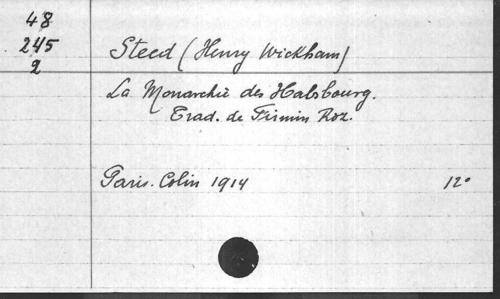 48
245
2
Steed (Henry Wickham)
La Monarchie des Habsbourg.
Trad. de Firmin Roz.
Paris. Colin 1914 12°